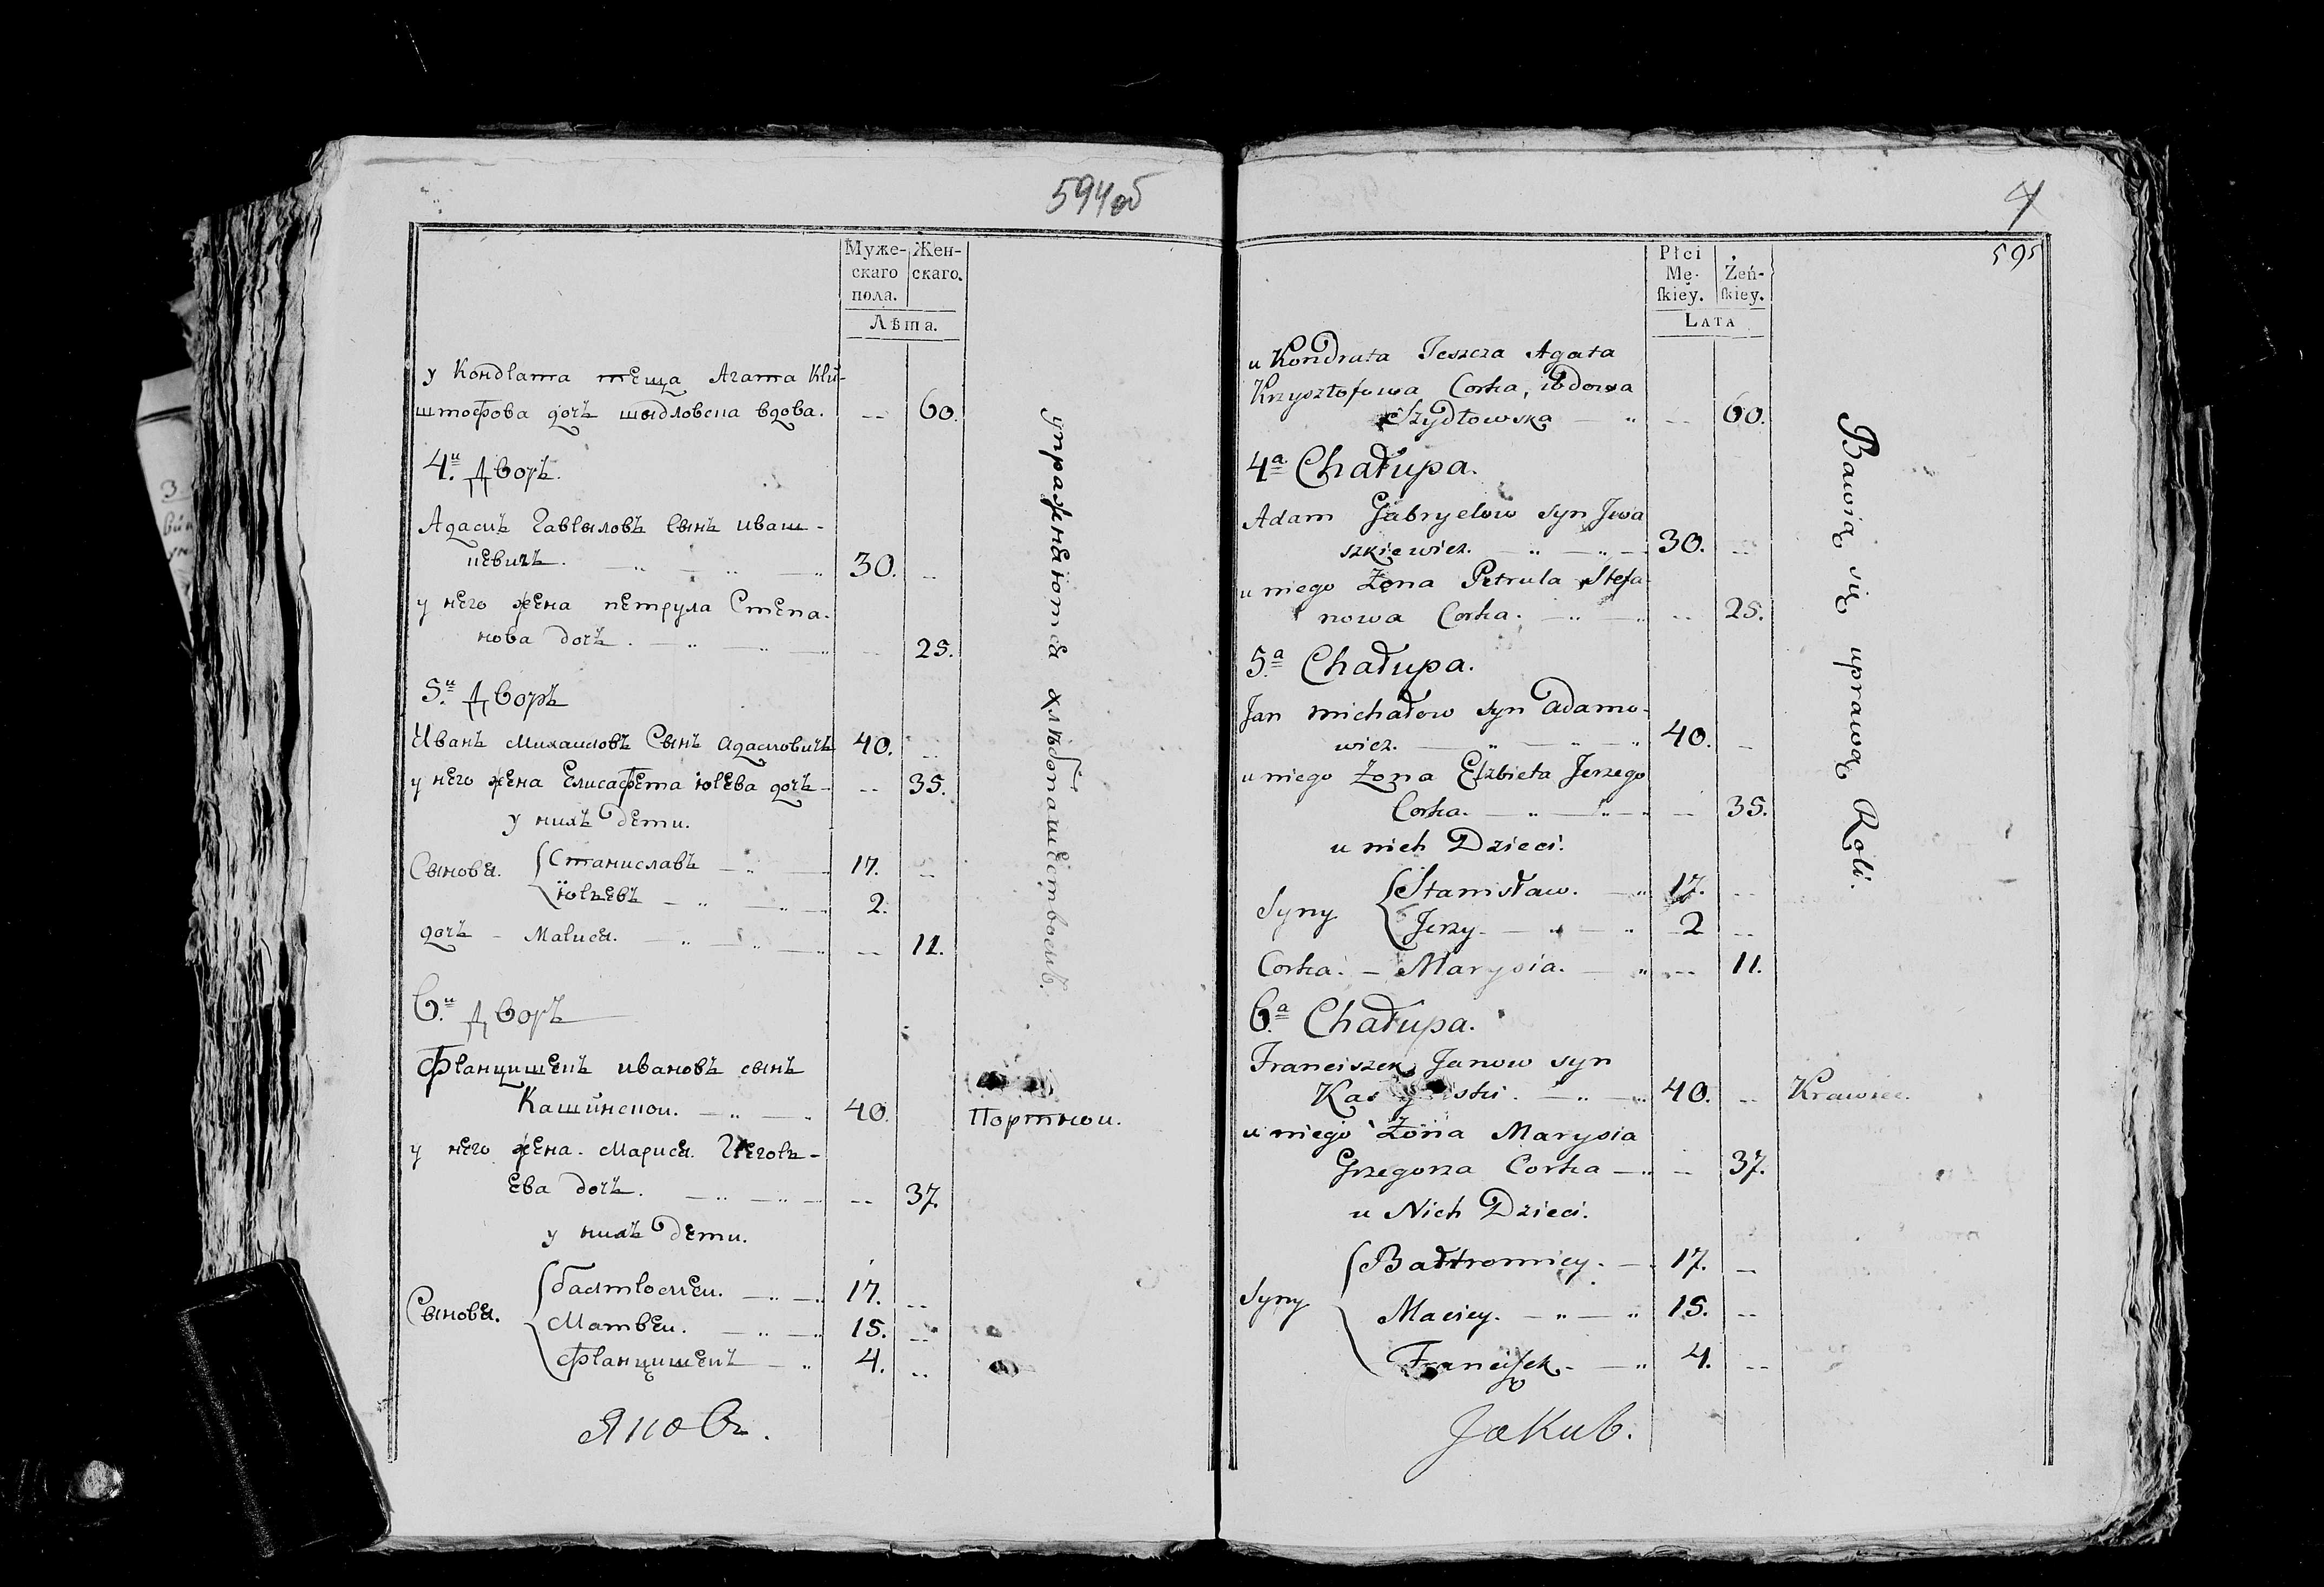 594 об
Муже-
скаго
пола.
Жен-
скаго.
Лѣта.
у Кондрата теща Агата Кри-
штофова дочь шыдловска вдова. -- 60.
4й Дворъ.
Адамъ Гаврыловъ Сынъ иваш-
кевичъ. 30. --
у него жена петрула Степа-
нова дочь. -- 25.
5й Дворъ
Иванъ михаиловъ Сынъ адамовичъ 40. --
у него жена Елисафета юрева дочь -- 35.
у нихъ дети.
Сыновя. Станиславъ 17. --
юрьевъ 2.
дочь - Марися. -- 11.
6й Дворъ
Францишекъ ивановъ сынъ
Кашинской. 40. Портнои.
у него жена. Марися. Грегорь-
ева дочь. -- 37.
у нихъ дети.
Сыновя. бартломеи. 17. --
Матвеи. 15. --
Францишекъ 4. --
Яковъ.
упражняются хлѣбопашествомъ.
4
595
Płci
Mę-
ſkieÿ.
Żeń-
ſkiey.
LATA
u Kondrata Teszcza Agata
Krzysztofowa Corka, wdowa
Szydłowska -- 60.
4a Chałupa.
Adam Gabryelow syn Jwa
szkiewicz. 30. --
u niego Żona Petrula Stefa-
nowa Corka. -- 25.
5a Chałupa.
Jan michałow syn Adamo-
wicz. 40. --
u niego Żona Elżbieta Jerzego
Corka. -- 35.
u nich Dzieci.
Syny Stanisław. 17. --
Jerzy. 2 --
Corka. - Marysia. -- 11.
6a Chałupa.
Franciszek Janow syn
40. -- Krawiec.
u niego Żona Marysia
Grzegorza Corka -- 37.
u Nich Dzieci.
Syny Bałtromiey. 17. --
Maciey. 15. --
Franciſzek. 4. --
Jakub.
Bawią się uprawą Roli.